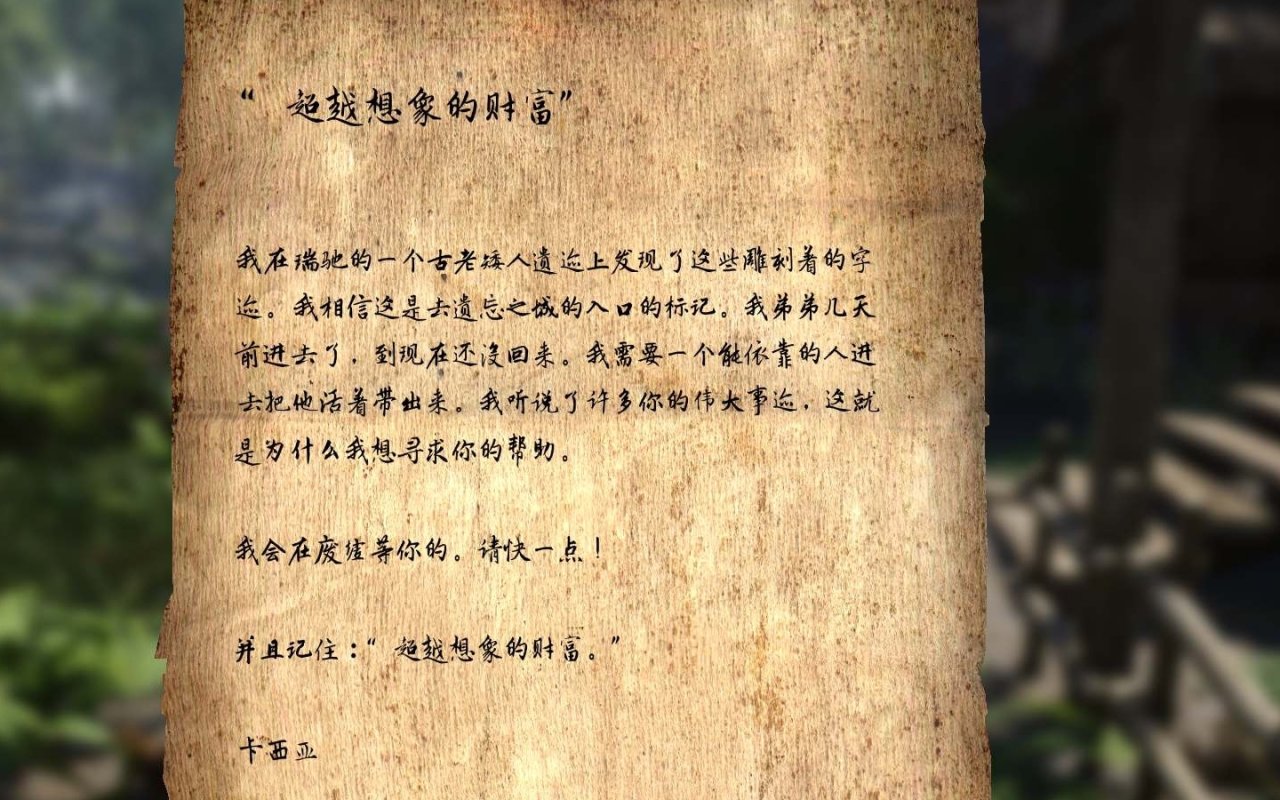 “ 超越想象的财富”
我在瑞驰的一个古老矮人遗迹上发现了这些雕刻着的字
迹。我相信这是去遗忘之城的入口的标记。我弟弟几天
前进去了，到现在还没回来。我需要一个能依靠的人进
去把他活着带出来。我听说了许多你的伟大事迹，这就
是为什么我想寻求你的帮助。
我会在废墟等你的。请快一点！
并且记住：“ 超越想象的财富。”
卡西亚